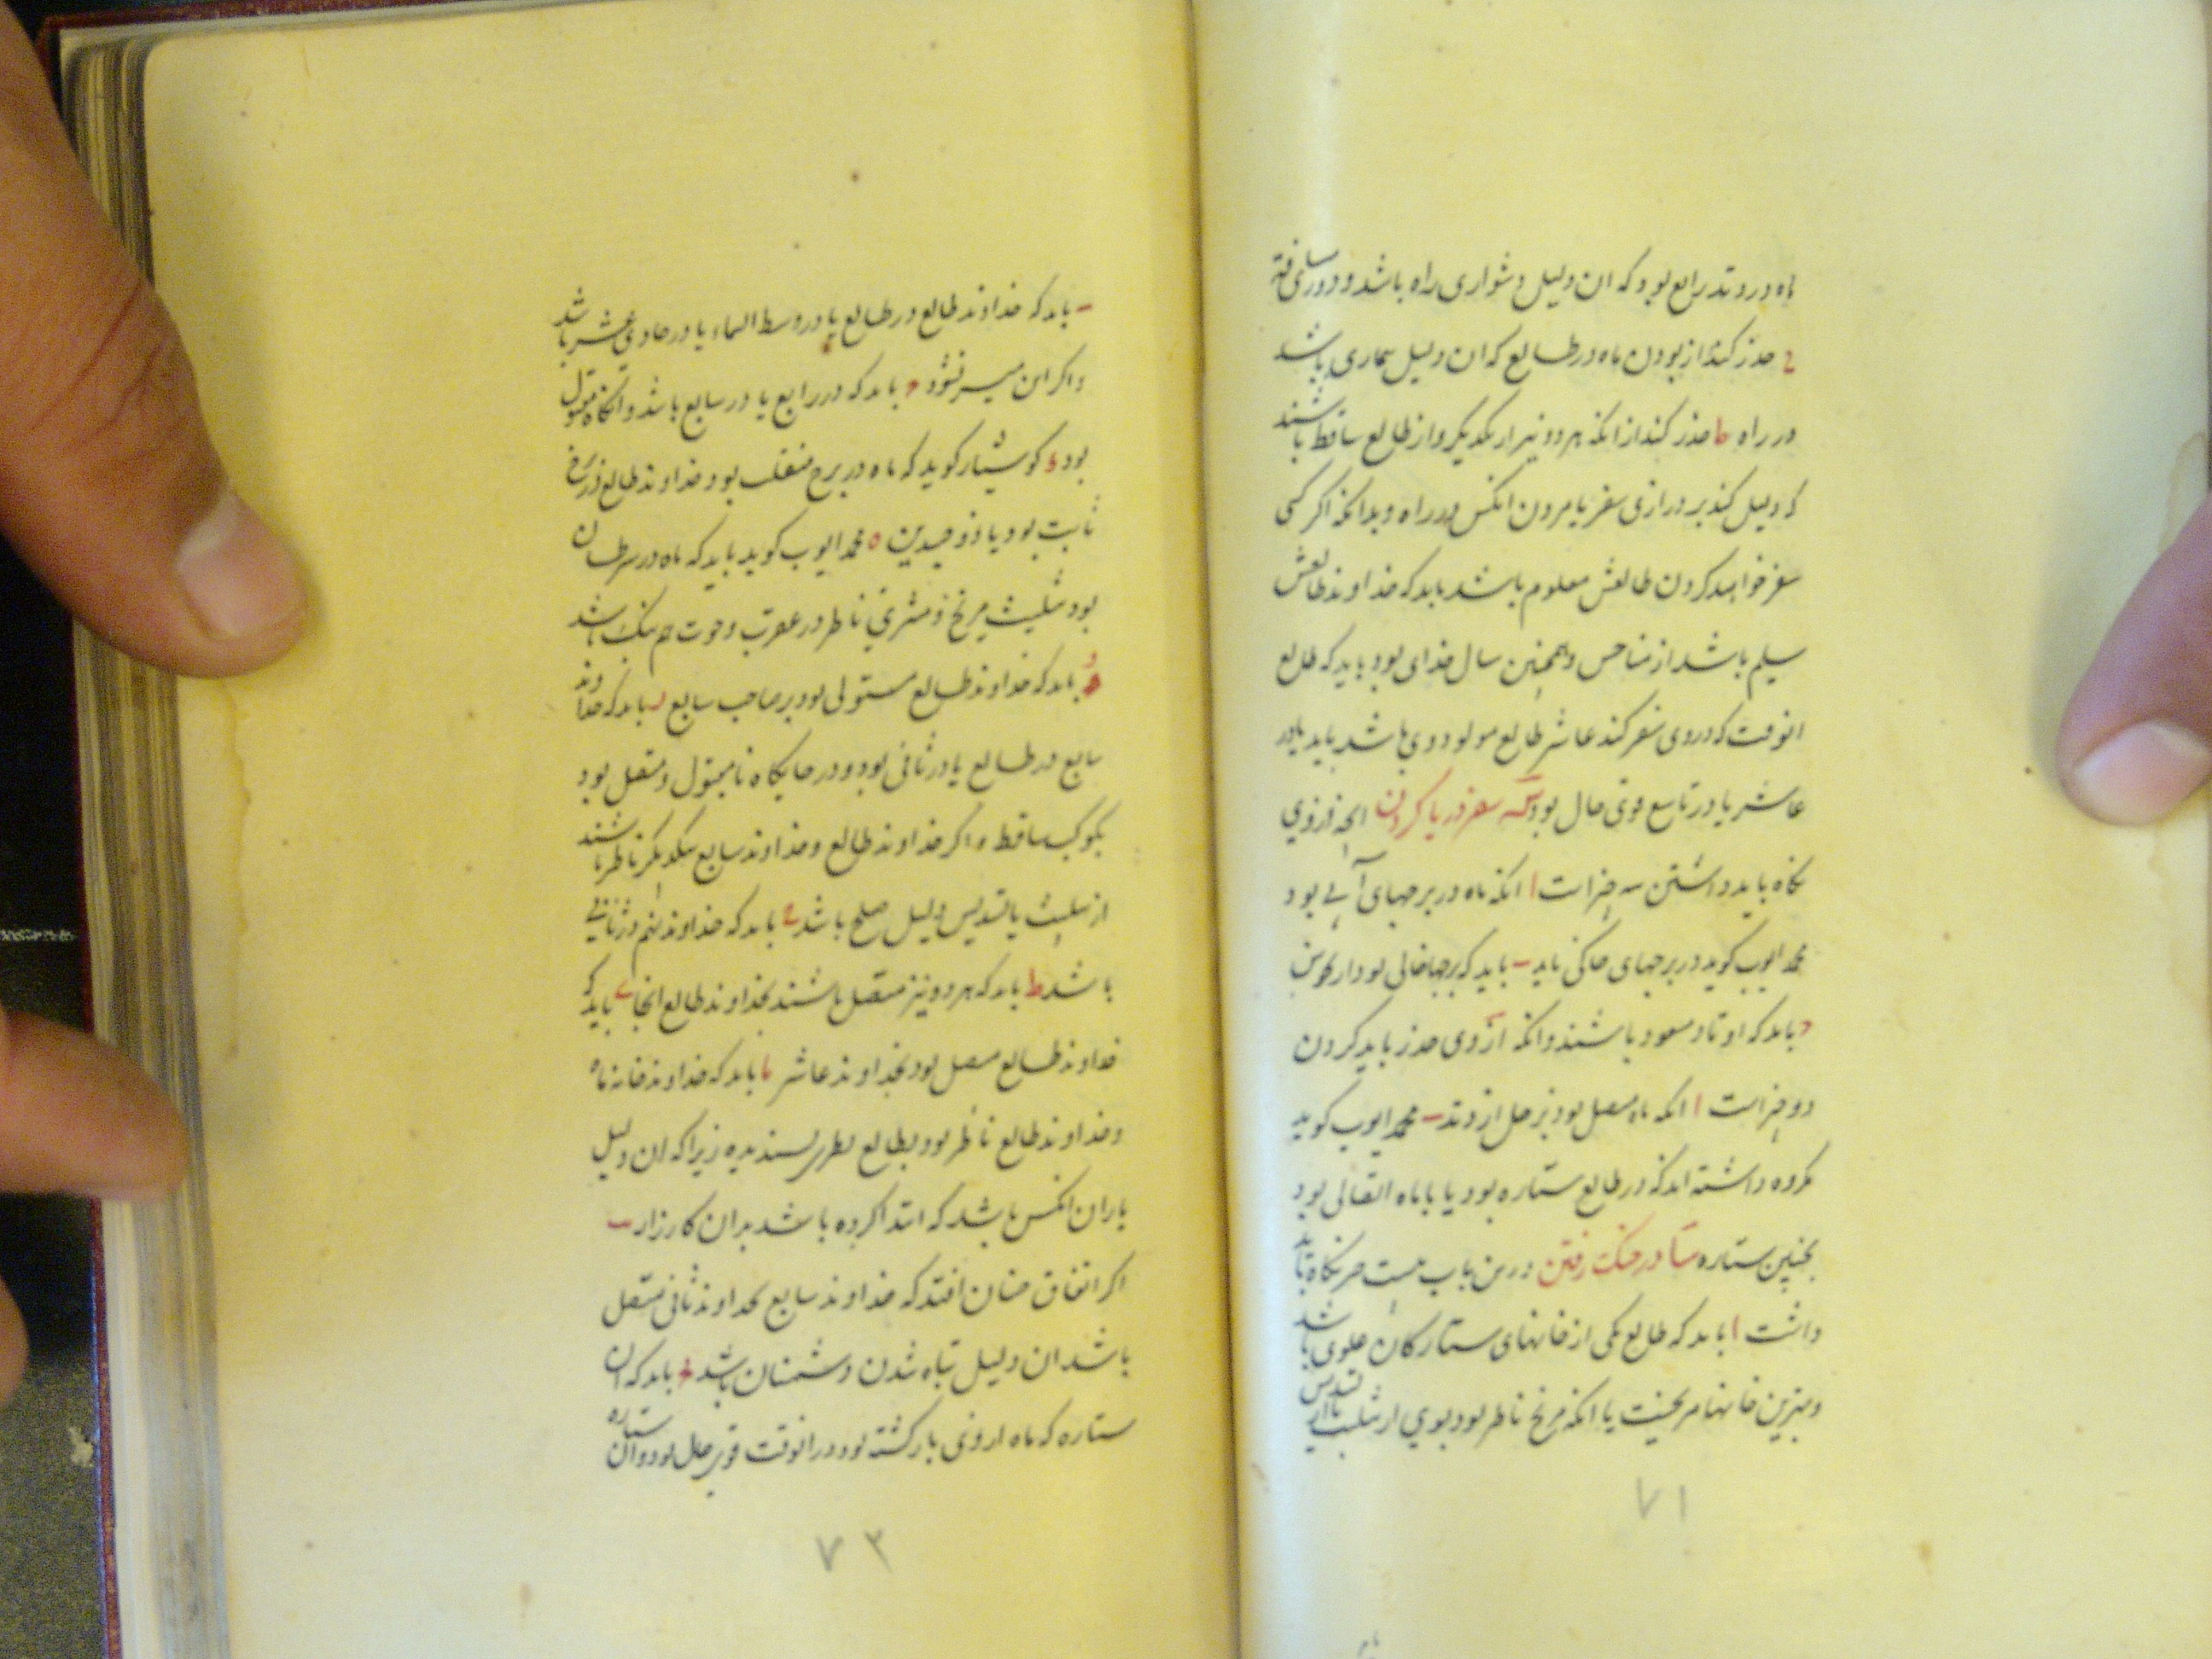 ماه در وتد رابع بود که ان دلیل دشواری راه باشد و دور
ح حذر کند از بودن ماه در طالع که ان دلیل بیماری باشد
در راه ط حذر کند از انکه هر دو نیر از یکدیکر و از طالع ساقط باشند
که دلیل کند بر درازی سفر یا مردن انکس در راه و بدانکه اکر کسی
سفر خواهد کردن طالعش معلوم باشد باید که خداوند طالعش
سلیم باشد از مناحس و همچنین سال خدای بود باید که طالع
انوقت که در وی سفر کند عاشر طالع مولود وی باشد باید یا در
عاشر یا در تاسع قوی حال بود سفر دریا کردن انچه از وی
نکاه باید داشتن سه چیز است ا انکه ماه در برجهای آبی بود
محمد ایوب کوید در برجهای خاکی باید ب باید که برجها خالی بود از نحوس
ج باید که اوتاد مسعود باشند و انکه از وی حذر باید کردن
دو چیز است ا انکه ماه متصل بود بزحل از وتد ب محمد ایوب کوید
مکروه داشته اند که در طالع ستاره بود یا با ماه اتصالی بود
بچنین ستاره در جنک رفتن درین باب بیست چیز نکاه باید
داشت ا باید که طالع یکی از خانهای ستارکان علوی باشد
و بهترین خانها مریخیست یا انکه مریخ ناظر بود بوی از تثلیث یا از تسدیس
۷۱
ب باید که خداوند طالع در طالع یا در وسط السماء یا در حادی عشر باشد
و اکر این میسر نشود ج باید که در رابع یا در سابع باشد و انکاه مقبول
بود د کوشیار کوید که ماه در برج منقلب بود و خداوند طالع در برج
ثابت بود یا ذو جسدین ه محمد ایوب کوید باید که ماه در سرطان
بود بتثلیث مریخ و مشتری ناظر در عقرب و حوت هم نیک باشد
و باید که خداوند طالع مستولی بود بر صاحب سابع ز باید که خداوند
سابع در طالع یا در ثانی بود و در جایکاه نامقبول و متصل بود
بکوکب ساقط و اکر خداوند طالع و خداوند سابع بیکدیکر ناظر باشند
از تثلیث یا تسدیس دلیل صلح باشد ح باید که خداوند هشتم در ثانی
باشد ط باید که هر دو نیر متصل باشند بخداوند طالع انجا ی باید که
خداوند طالع متصل بود بخداوند عاشر یا باید که خداوند خانه ماه
و خداوند طالع ناظر بود بطالع نظری پسندیده زیرا که ان دلیل
یاران انکس باشد که ابتدا کرده باشد بدان کارزار یب
اکر اتفاق چنان افتد که خداوند سابع بخداوند ثانی متصل
باشد ان دلیل تباه شدن دشمنان باشد یج باید که ان
ستاره که ماه از وی بازکشته بود در انوقت قوی حال بود و ان ستاره
۷۲